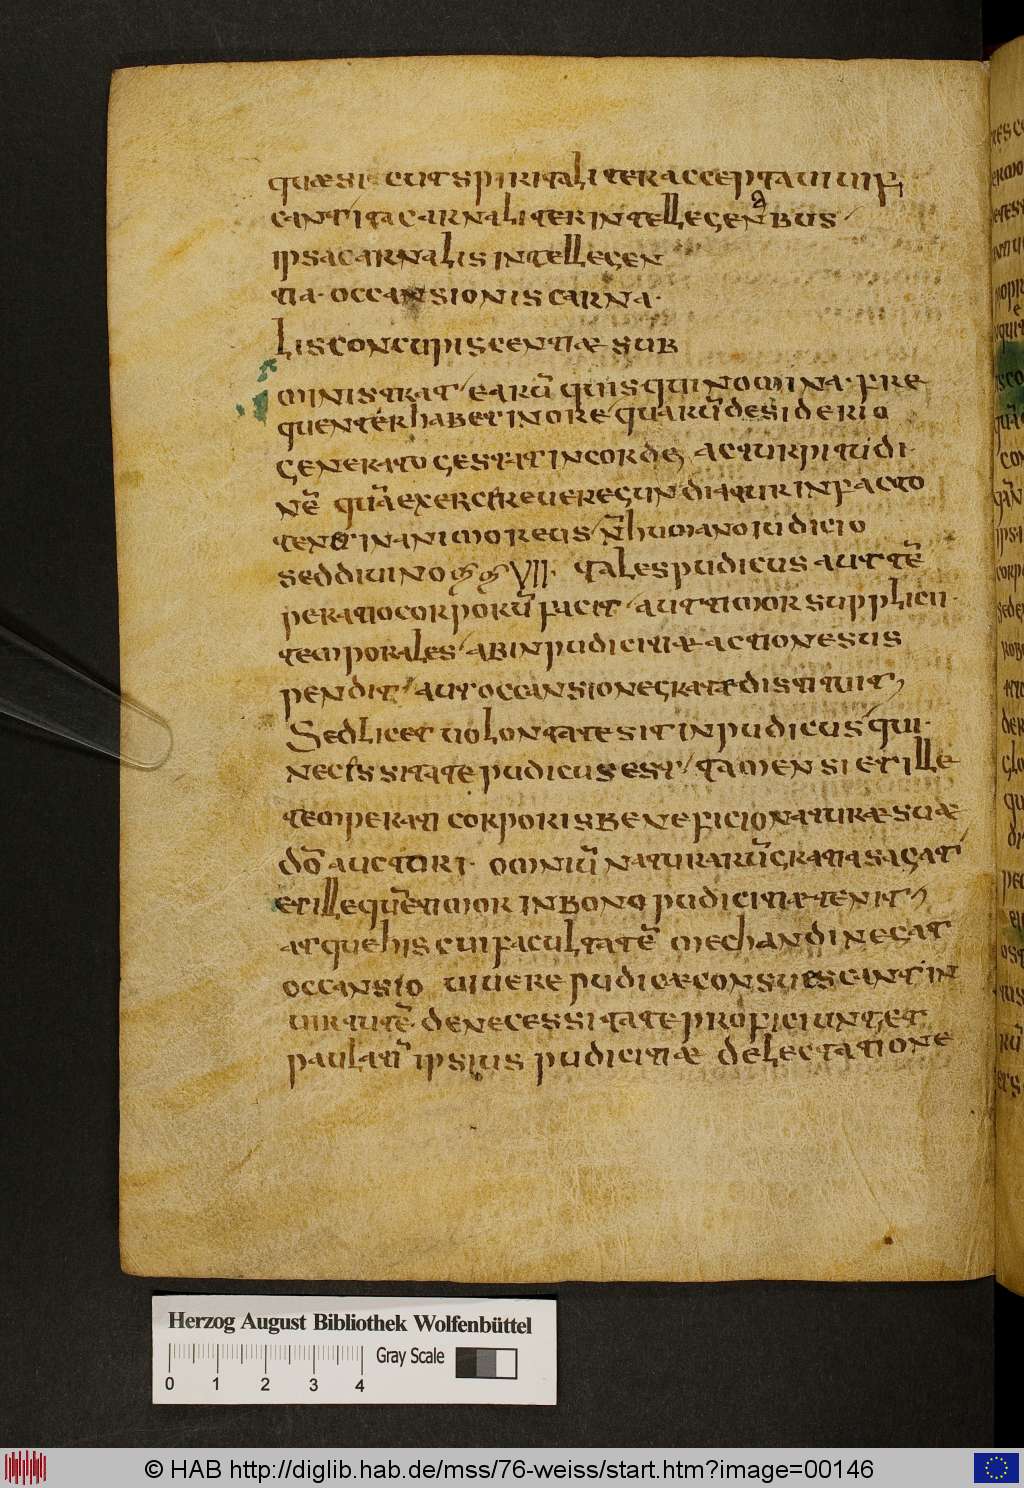 quæ sicut spiritaliter accepta uiuifi
cant ita carnaliter intellegentibus
ipsa carnalis intellegen
tia · occansionis carna ·
lis concupiscentiæ sub
ministrat earū quis qui nomina · fre
quenter habet in ore quarū desiderio
generato gestat in corde, ac turpitudi ·
nē quā exercere uerecundatur in facto
tenet in animo reus n̄ humano iudicio
sed diuino VII · tales pudicus aut tē
peratio corporū facit aut timor supplicii ·
temporales ab inpudicitiæ actiones sus
pendit aut occansione grate distituit,
Sed licet uolontate sit inpudicus qui ·
necessitate pudicus est tamen si et ille
temperati corporis beneficio naturæ suæ
dō auctori · omniū naturarū gratias agat
et ille quē timor in bono pudicitiæ tenit,
atque his cui facultatē mechandi negat
occansio uiuere pudicæ consuescant in
uirtutē · de necessitate proficiunt et
paulatī ipsius pudicitiæ delectatione
Herzog August Bibliothek Wolfenbüttel
Gray Scale
0 1 2 3 4
© HAB http://diglib.hab.de/mss/76-weiss/start.htm?image=00146